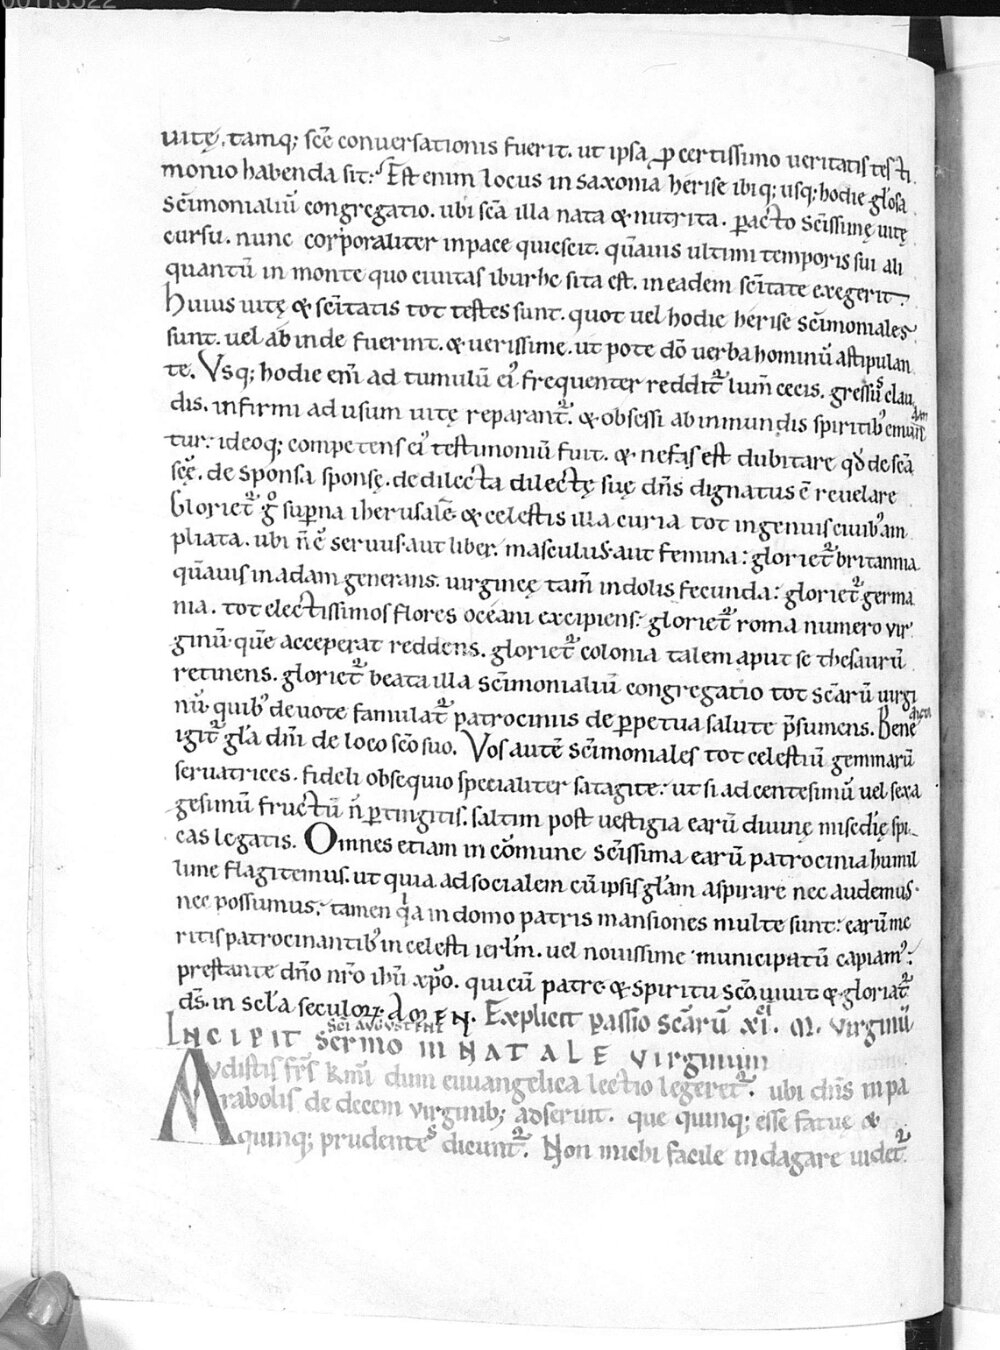 00113322
uitę. tamq; scē conuersationis fuerit. ut ipsa ꝓ certissimo ueritatis testi
monio habenda sit. Est enim locus in saxonia herise ibiq; usq; hodie gl'osa
scīmonialiū congregatio. ubi scā illa nata & nutrita. ꝑacto scīssimę uitę
cursu. nunc corporaliter in pace quiescit. quāuis ultimi temporis sui ali
quantū in monte quo ciuitas iburhc sita est. in eadem scītate exegerit.
Huius uitę & scītatis tot testes sunt. quot uel hodie herise scīmoniales
sunt. uel ab inde fuerint. & uerissime. ut pote dō uerba hominū astipulan
te. Vsq; hodie eni̅ ad tumulū ei᾽ frequenter reddit᷑ lum̅ cecis. gressus clau
dis. infirmi ad usum uitę reparant᷑. & obsessi ab inmundis spiritib᾽ emun dan
tur. ideoq; competens ei᾽ testimoniū fuit. & nefas est dubitare qđ de scā
scę. de sponsa sponsę. de dilecta dilectę suę dn̄s dignatus ē reuelare
Gloriet᷑ gͦ suꝑna iherusalē. & celestis illa curia tot ingenuis ciuib᾽ am
pliata. ubi n̄ ē seruus aut liber. masculus aut femina: gloriet᷑ britannia
quāuis in adam generans. uirgineę tam̅ indolis fecunda: gloriet᷑ germa
nia. tot electissimos flores oceani excipiens: gloriet᷑ roma numero vir
ginū quē acceperat reddens. gloriet᷑ colonia talem aput se thesaurū
retinens. gloriet᷑ beata illa scīmonialiū congregatio tot scārū uirgi
nū. quib᾽ deuote famulat᷑ patrociniis de ꝑpetua salute p̄sumens. Bene dicta
igit᷑ gl'a dn̄i de loco scō suo. Vos autē scīmoniales tot celestiū gemmarū
seruatrices. fideli obsequio specialiter satagite: ut si ad centesimū uel sexa
gesimū fructū n̄ ꝑtingitis. saltim post uestigia earū diuinę mis̄cdię spi
cas legatis. Omnes etiam in cōmune scīssima earū patrocinia humil
lime flagitemus. ut quia ad socialem cū ipsis gl'am aspirare nec audemus
nec possumus. tamen qͥa in domo patris mansiones multe sunt: earū me
ritis patrocinantib᾽ in celesti ierl̄m. uel nouissime municipatū capiam᾽:
prestante dn̄o nr̄o ihū xp̄o. qui cū patre & spiritu scō uiuit & gloriat᷑
ds̄. in scl'a seculoꝝ AMEN. Explicit passio scārū xi. M. virginū
SCI AVGVSTINI
INCIPIT Sermo in NATALE Virginum
Audistis fr̄s km̄i dum euuangelica lectio legeret᷑. ubi dn̄s in pa
rabolis de decem virginib; adseruit. que quinq; esse fatue &
quinq; prudentes dicunt᷑. Non michi facile indagare uidet᷑.